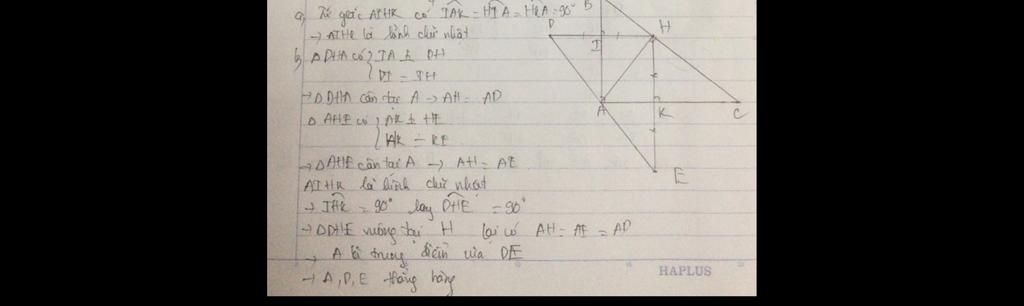 a) Tứ giác AIHK có IAK = HIA = HKA = 90°
→ AIHK là hình chữ nhật
b) Δ DHA có { IA ⊥ DH
DI = IH
→ Δ DHA cân tại A → AH = AD
Δ AHE có { AK ⊥ HE
HK = KE
→ Δ AHE cân tại A → AH = AE
AIHK là hình chữ nhật
→ IHK = 90° hay DHE = 90°
→ Δ DHE vuông tại H lại có AH = AE = AD
→ A là trung điểm của DE
→ A, D, E thẳng hàng
B
D
I
H
A
K
C
E
HAPLUS